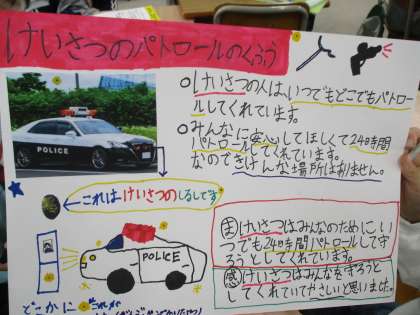 けいさつのパトロールのくふう
○けいさつの人は、いつでもどこでもパトロー
ルしてくれています。
○みんなに安心してほしくて24時間
パトロールしてくれています。
なのできけんな場所はありません。
POLICE
これはけいさつのしるしです
POLICE
ま けいさつはみんなのために、い
つでも24時間パトロールして守
ろうとしてくれています。
感 けいさつはみんなを守ろうと
してくれていてやさしいと思いました。
どこかに
これが